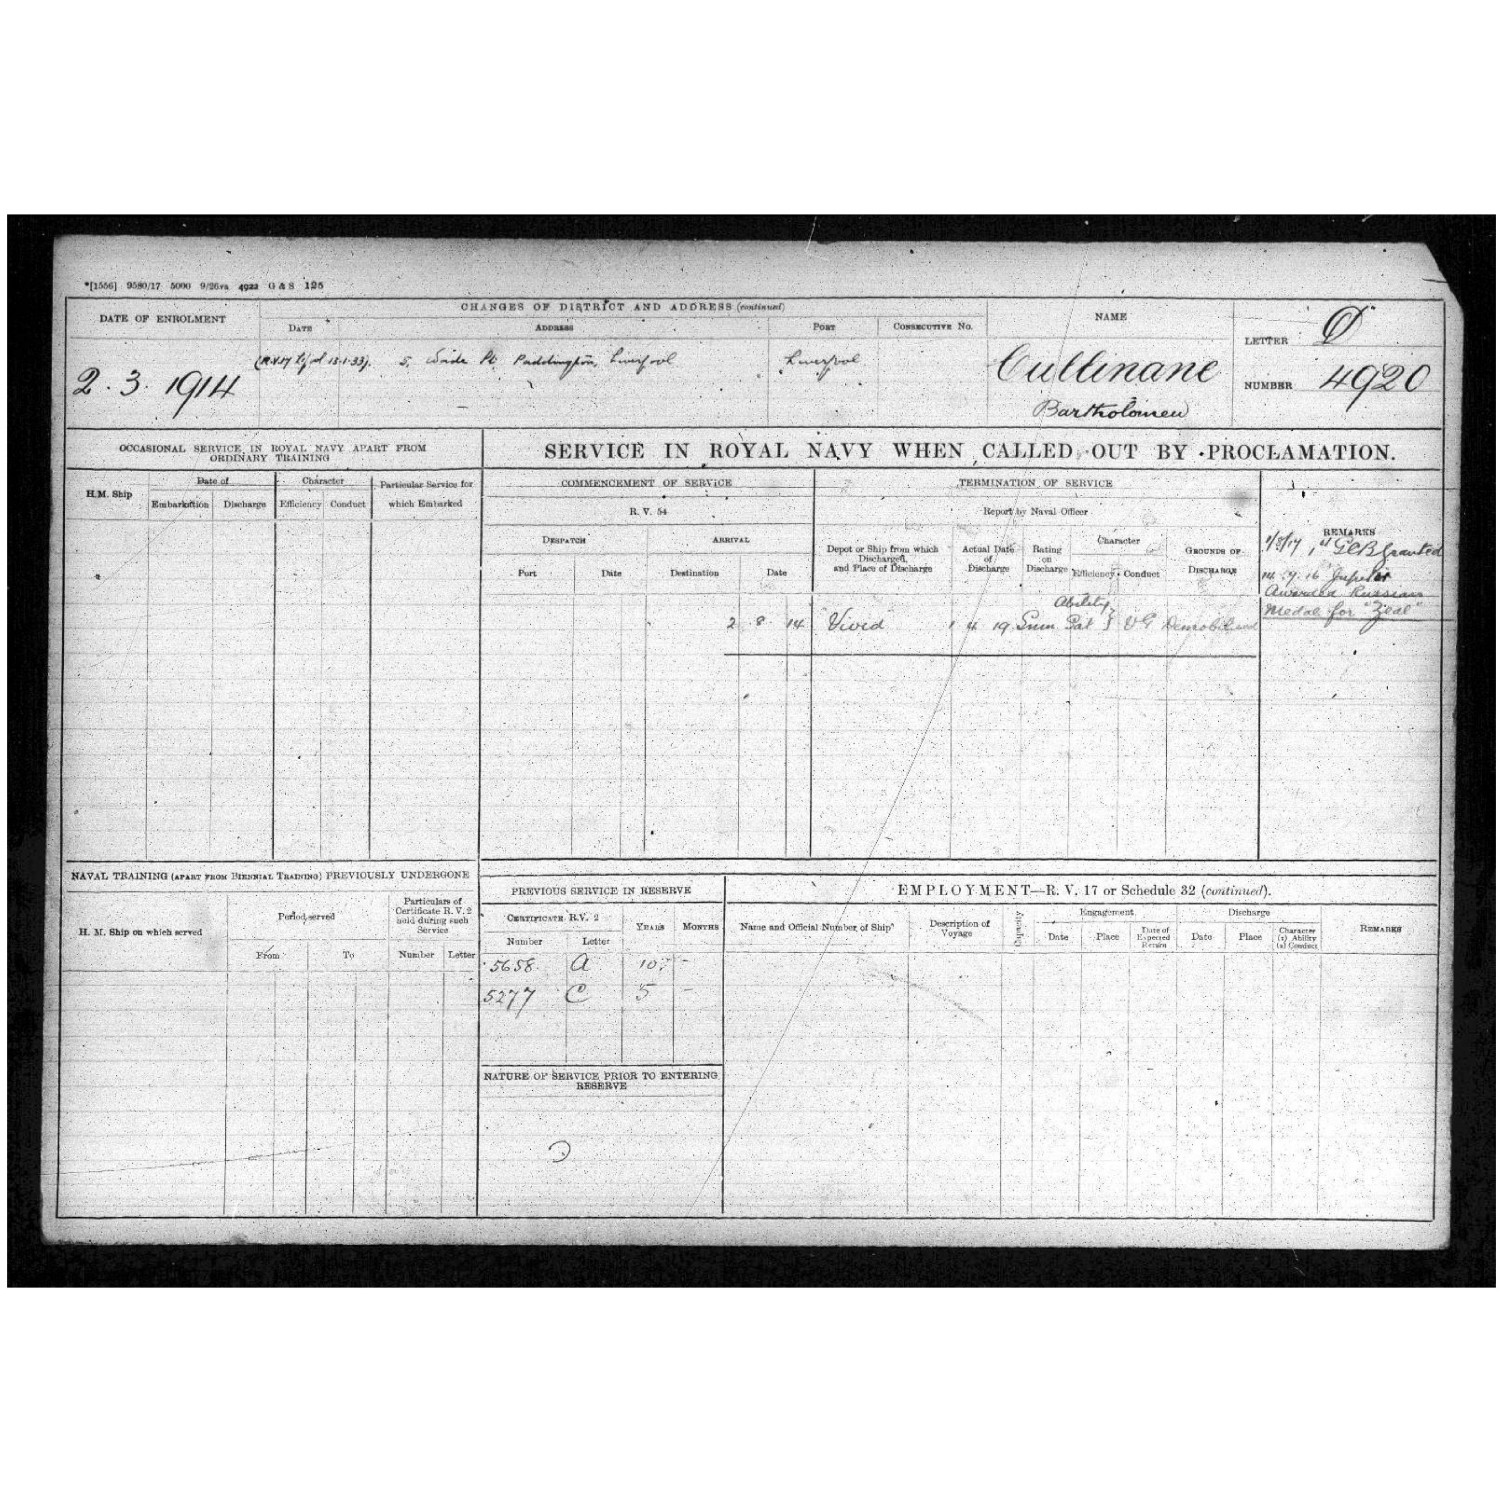 *[1556] 9580/17 5000 9/26 4922 G & S 125
DATE OF ENROLMENT
2. 3. 1914
CHANGES OF DISTRICT AND ADDRESS (continued)
DATE ADDRESS PORT CONSECUTIVE NO.
13-1-33). 5, Paddington, Liverpool Liverpool
NAME
Cullinane
Bartholomew
LETTER D
NUMBER 4920
OCCASIONAL SERVICE IN ROYAL NAVY APART FROM
ORDINARY TRAINING
H.M. Ship
Date of
Embarkation Discharge
Character
Efficiency Conduct
Particular Service for
which Embarked
SERVICE IN ROYAL NAVY WHEN CALLED OUT BY PROCLAMATION.
COMMENCEMENT OF SERVICE
R. V. 54
DESPATCH ARRIVAL
Port Date Destination Date
TERMINATION OF SERVICE
Report by Naval Officer
Depot or Ship from which
Discharged,
and Place of Discharge
Actual Date
of
Discharge
Rating
on
Discharge
Character
Efficiency Conduct
GROUNDS OF
DISCHARGE
REMARKS
1/3/17 1st GCB Granted
16 Jupiter
Awarded Russian
Medal for "Zeal"
Ability
2 8 14 Vivid 1 4 19 Smn Sat } VG Demobilized
NAVAL TRAINING (APART FROM BIENNIAL TRAINING) PREVIOUSLY UNDERGONE
H. M. Ship on which served
Period served
From To
Particulars of
Certificate R.V. 2
held during such
Service
Number Letter
PREVIOUS SERVICE IN RESERVE
CERTIFICATE R.V. 2
Number Letter
YEARS MONTHS
5658 A 10 -
5277 C 5 -
NATURE OF SERVICE PRIOR TO ENTERING
RESERVE
EMPLOYMENT—R. V. 17 or Schedule 32 (continued).
Name and Official Number of Ship
Description of
Voyage
Capacity
Engagement
Date Place
Date of
Expected
Return
Discharge
Date Place
Character
(1) Ability
(2) Conduct
REMARKS